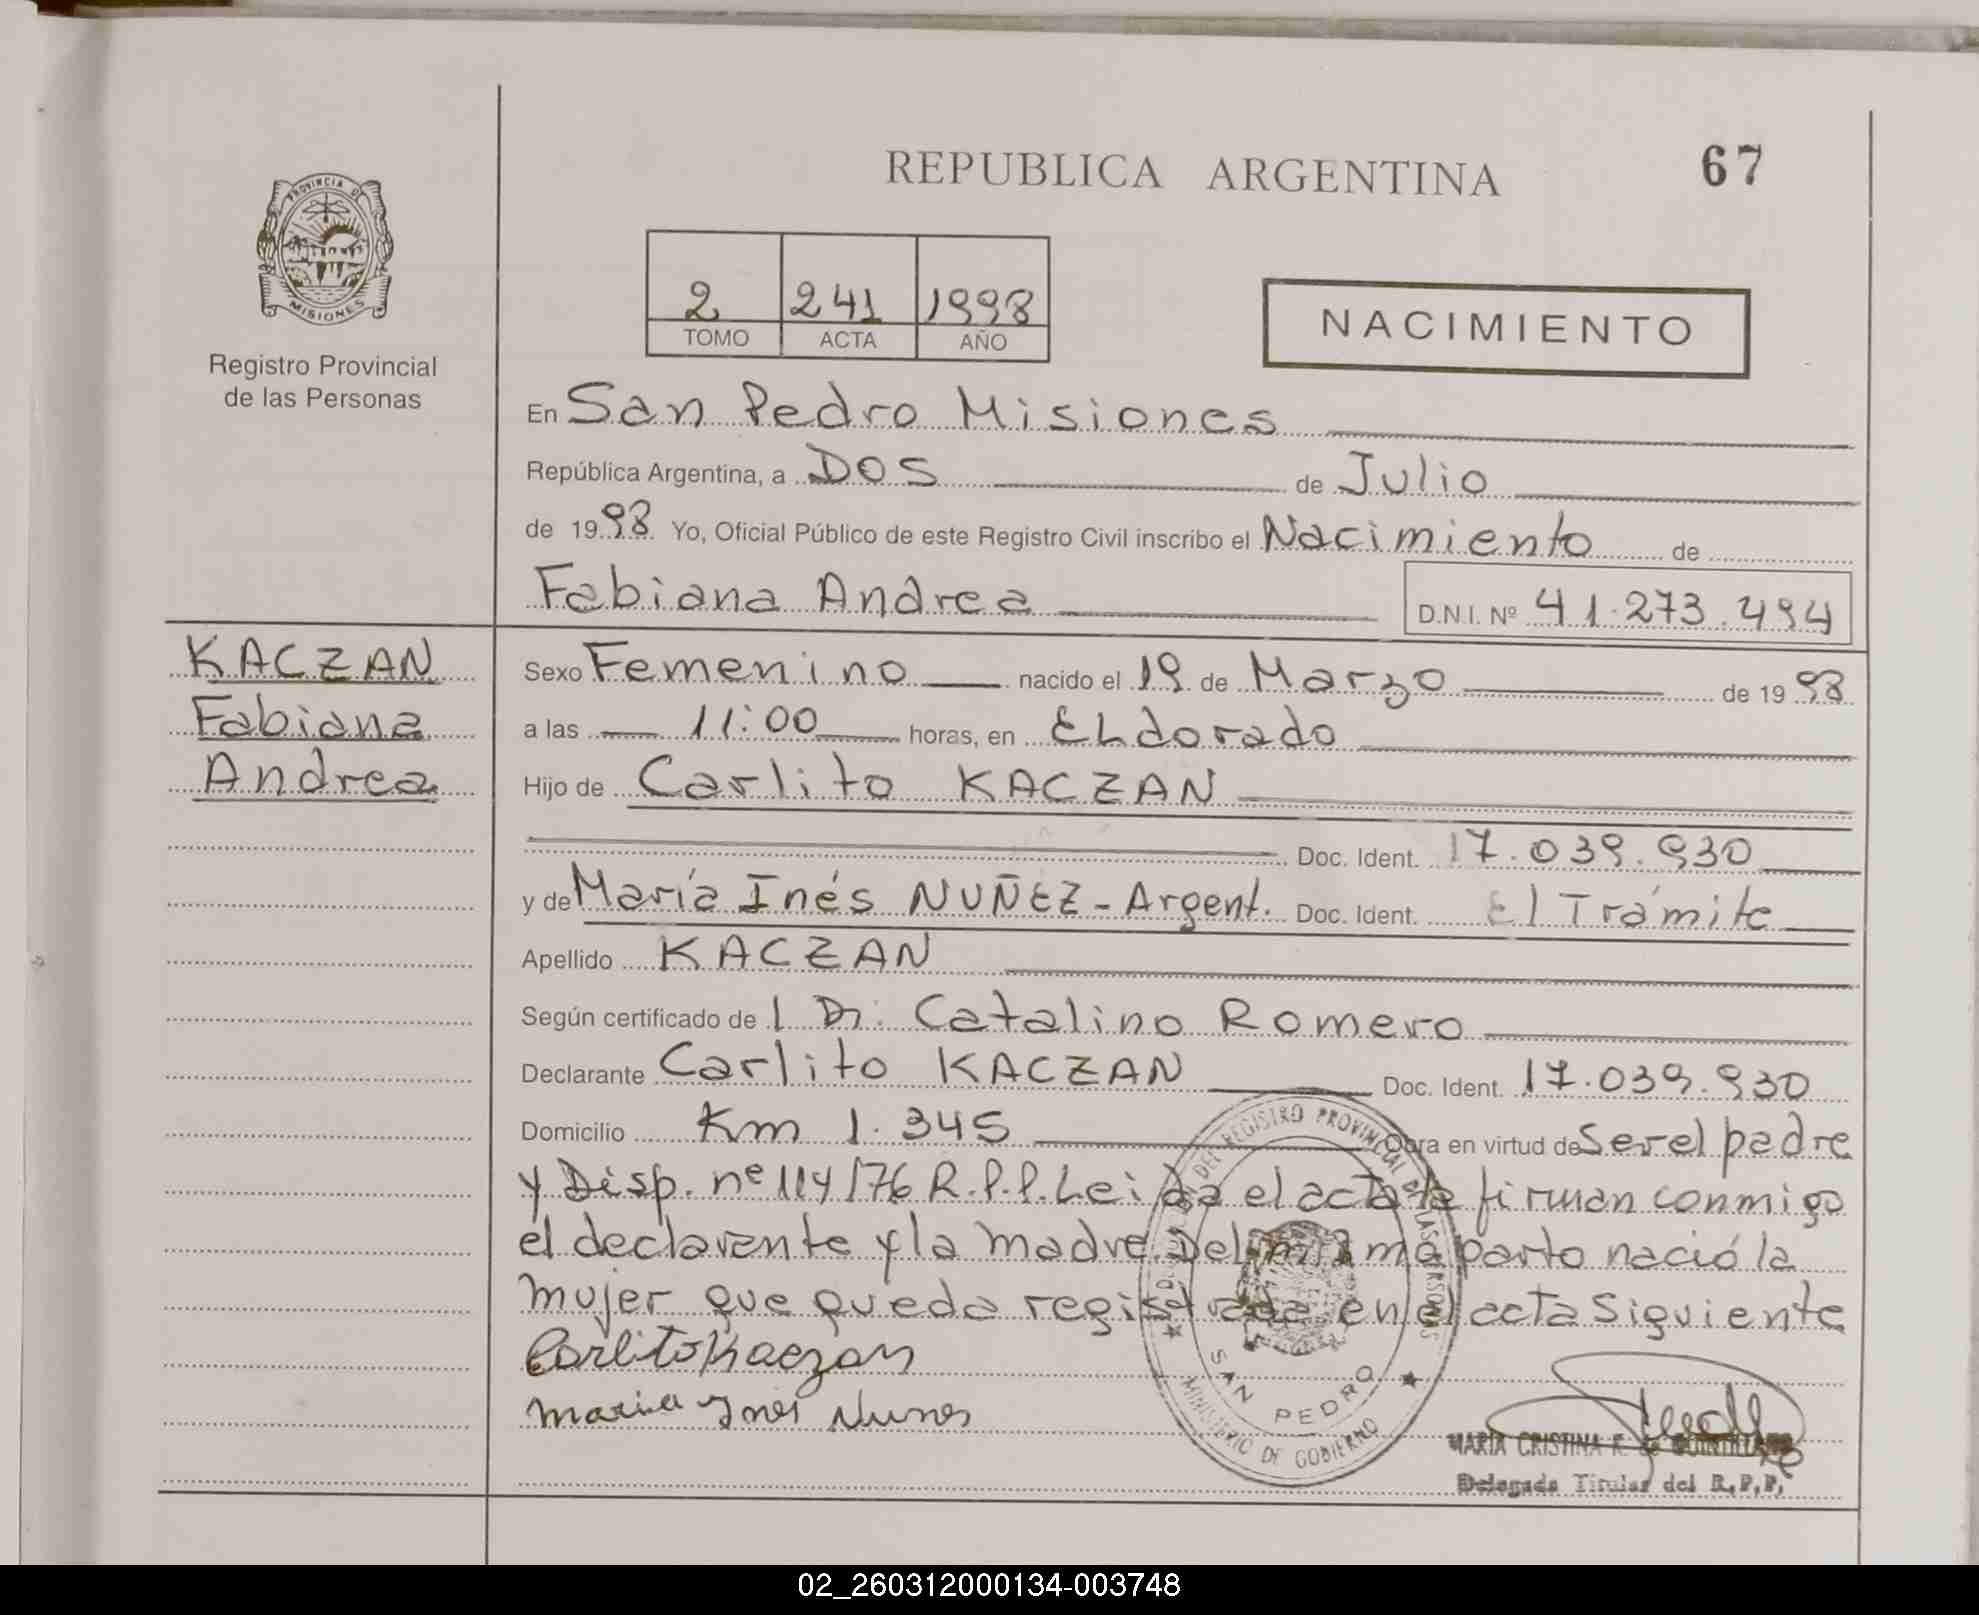 REPUBLICA ARGENTINA
67
PROVINCIA DE
MISIONES
Registro Provincial
de las Personas
2 241 1998
TOMO ACTA AÑO
NACIMIENTO
En San Pedro Misiones
República Argentina, a DOS de Julio
de 1998 Yo, Oficial Público de este Registro Civil inscribo el Nacimiento de
Fabiana Andrea D.N.I. Nº 41.273.494
KACZAN
Fabiana
Andrea
Sexo Femenino nacido el 19 de Marzo de 1998
a las 11:00 horas, en ELdorado
Hijo de Carlito KACZAN
Doc. Ident. 17.039.930
y de María Inés NUÑEZ - Argent. Doc. Ident. El Trámite
Apellido KACZAN
Según certificado de l Dr. Catalino Romero
Declarante Carlito KACZAN Doc. Ident. 17.039.930
Domicilio Km 1.345 Obra en virtud de Ser el padre
y Disp. nº 114/76 R.P.P. Leida el acta la firman conmigo
el declarante y la madre. Del mismo parto nació la
mujer que queda registrada en el acta Siguiente
Carlito Kaczan
Maria Ynes Nunes
DEL REGISTRO PROVINCIAL DE LAS PERSONAS
SAN PEDRO
MINISTERIO DE GOBIERNO
MARIA CRISTINA R. de
Delegada Titular del R.P.P.
02_260312000134-003748